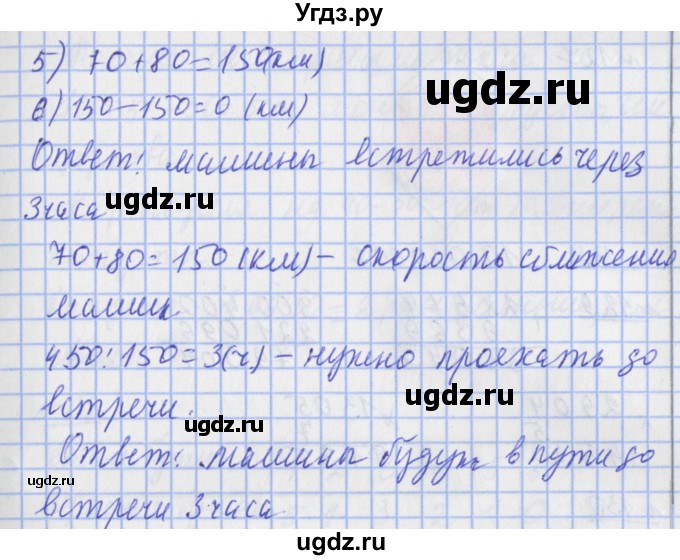 Угдз.ру
5) 70+80=150(км)
6) 150-150=0 (км)
ugdz.ru
Ответ: машины встретились через
3 часа
ugdz.ru
70+80=150(км) - скорость сближения
машин
ugdz.ru
450:150=3(ч) - нужно проехать до
встречи.
ugdz.ru
Ответ: машины будут в пути до
ugdz.ru
встречи 3 часа
ugdz.ru